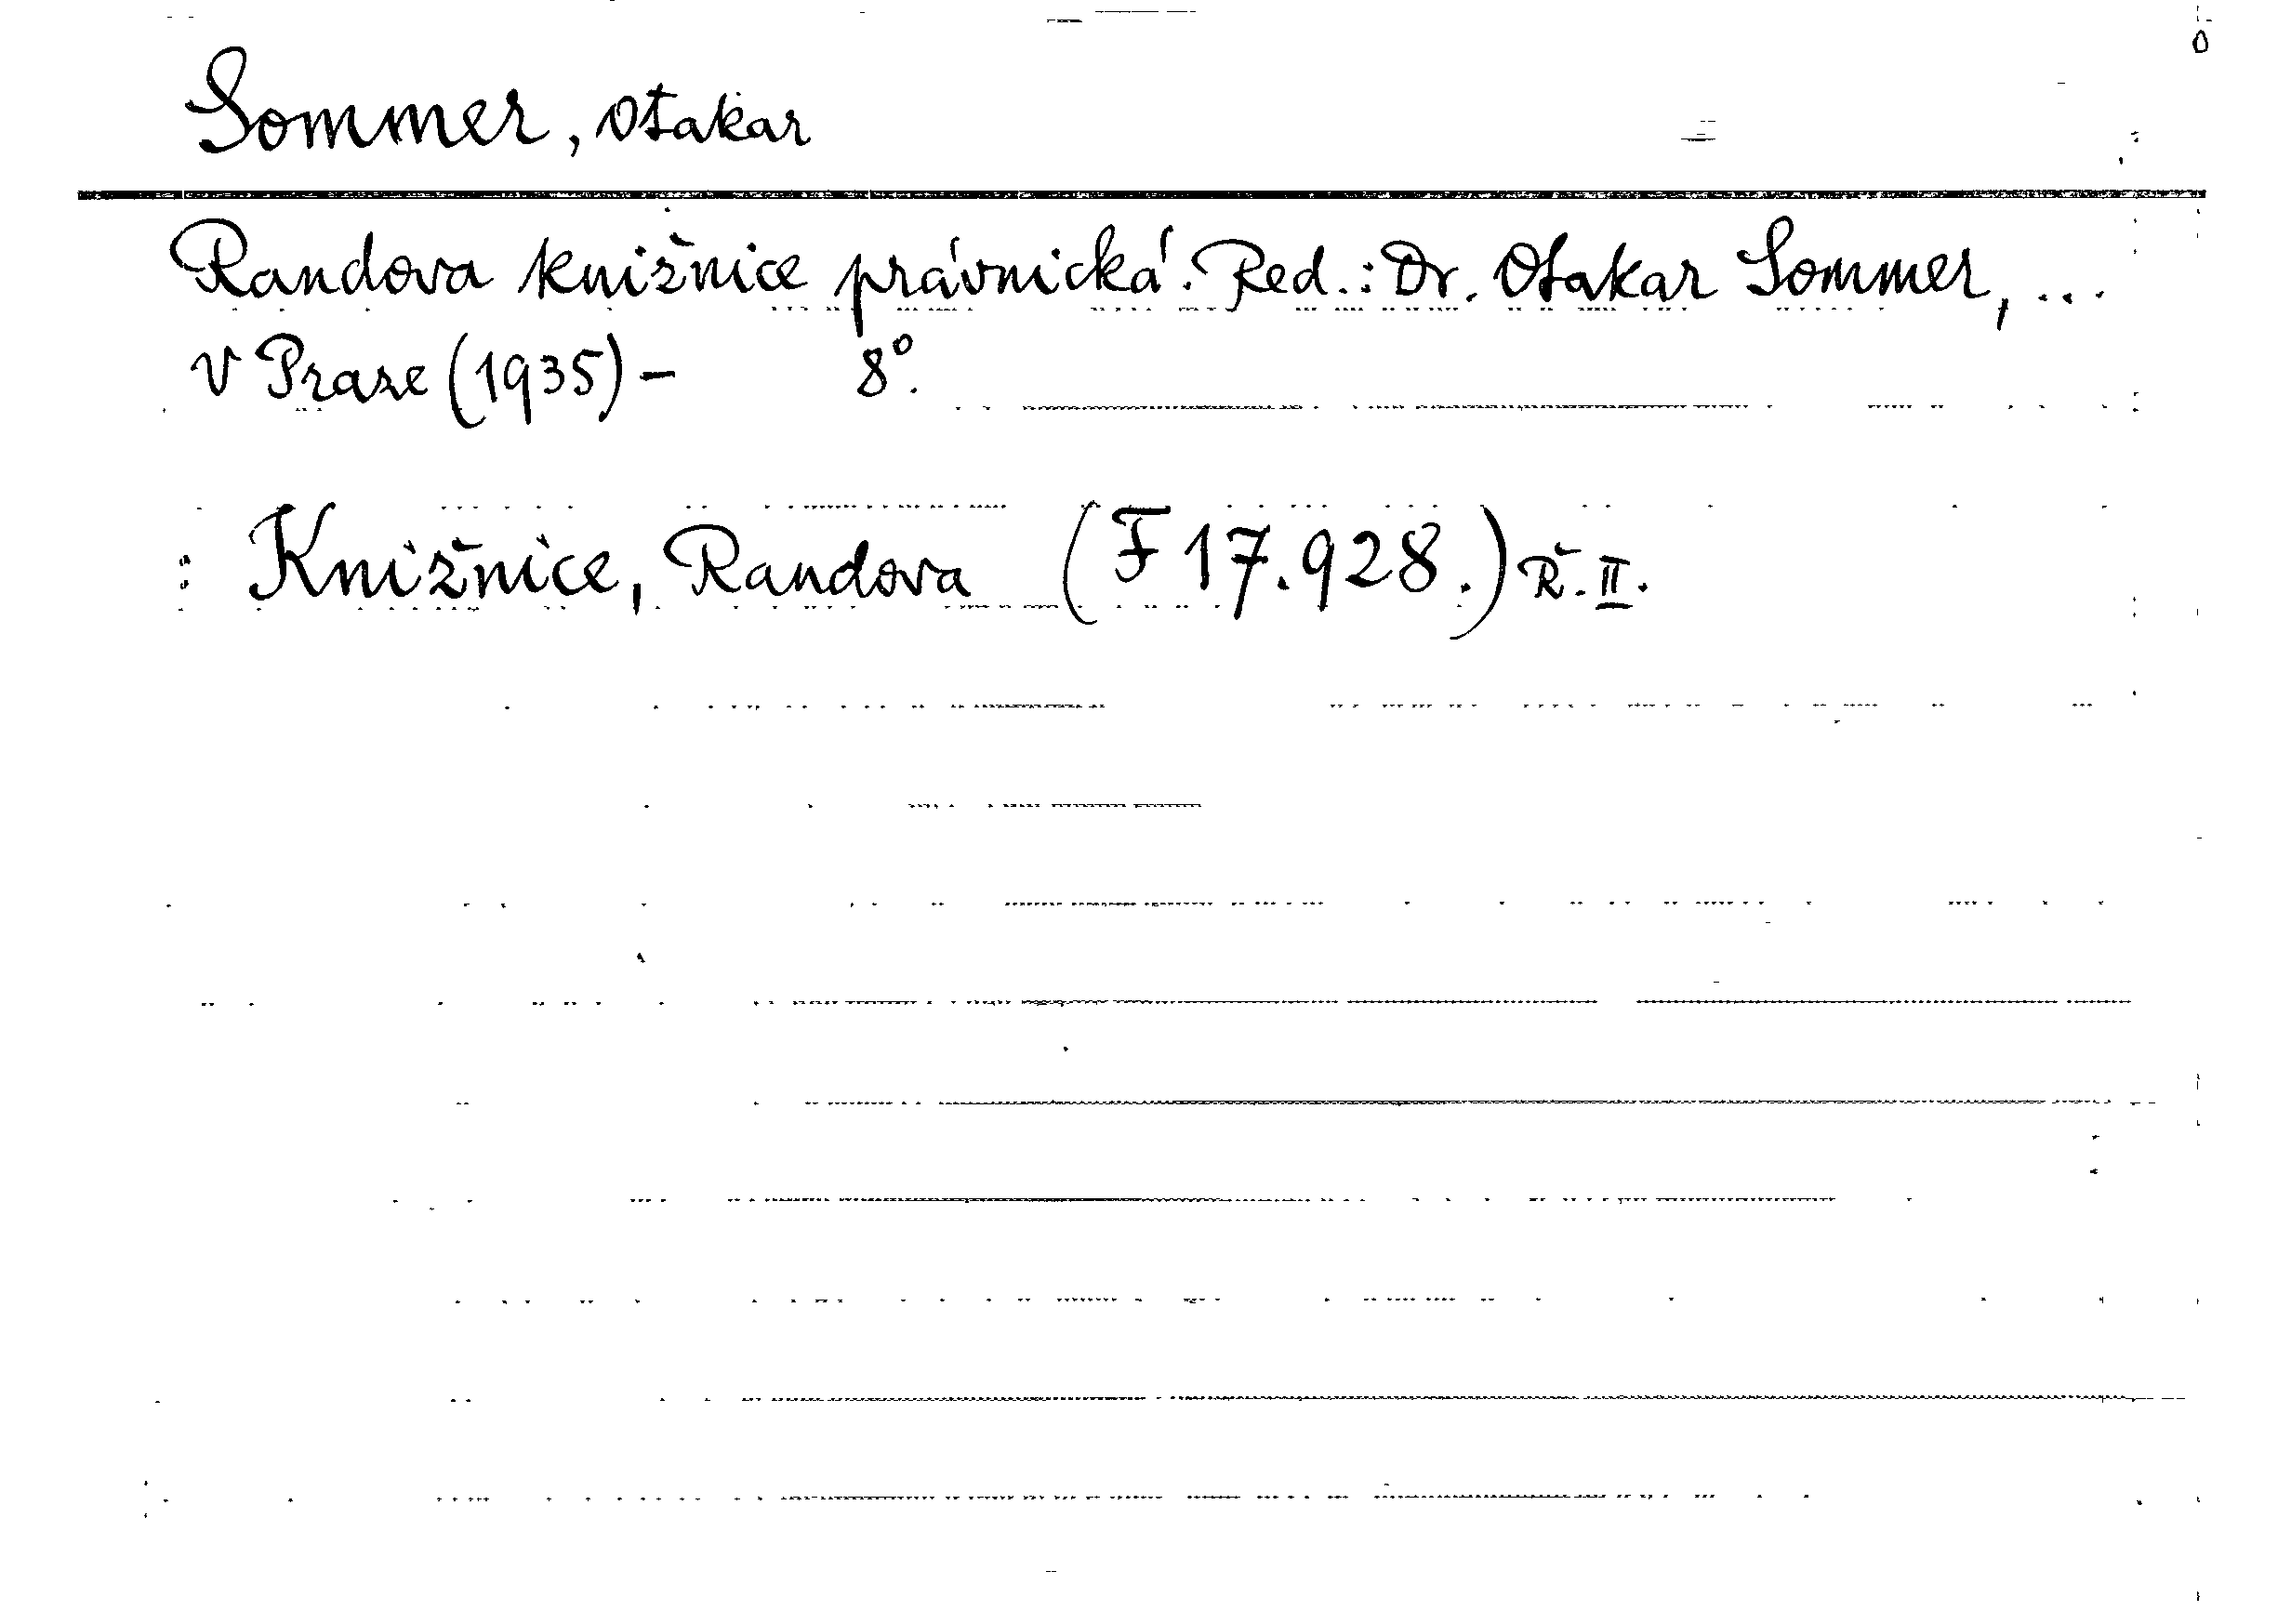 Sommer, Otakar
Randova knižnice právnická. Red.: Dr. Otakar Sommer, ...
V Praze (1935) - 8°.
: Knižnice, Randova (F 17.928.) Ř. II.